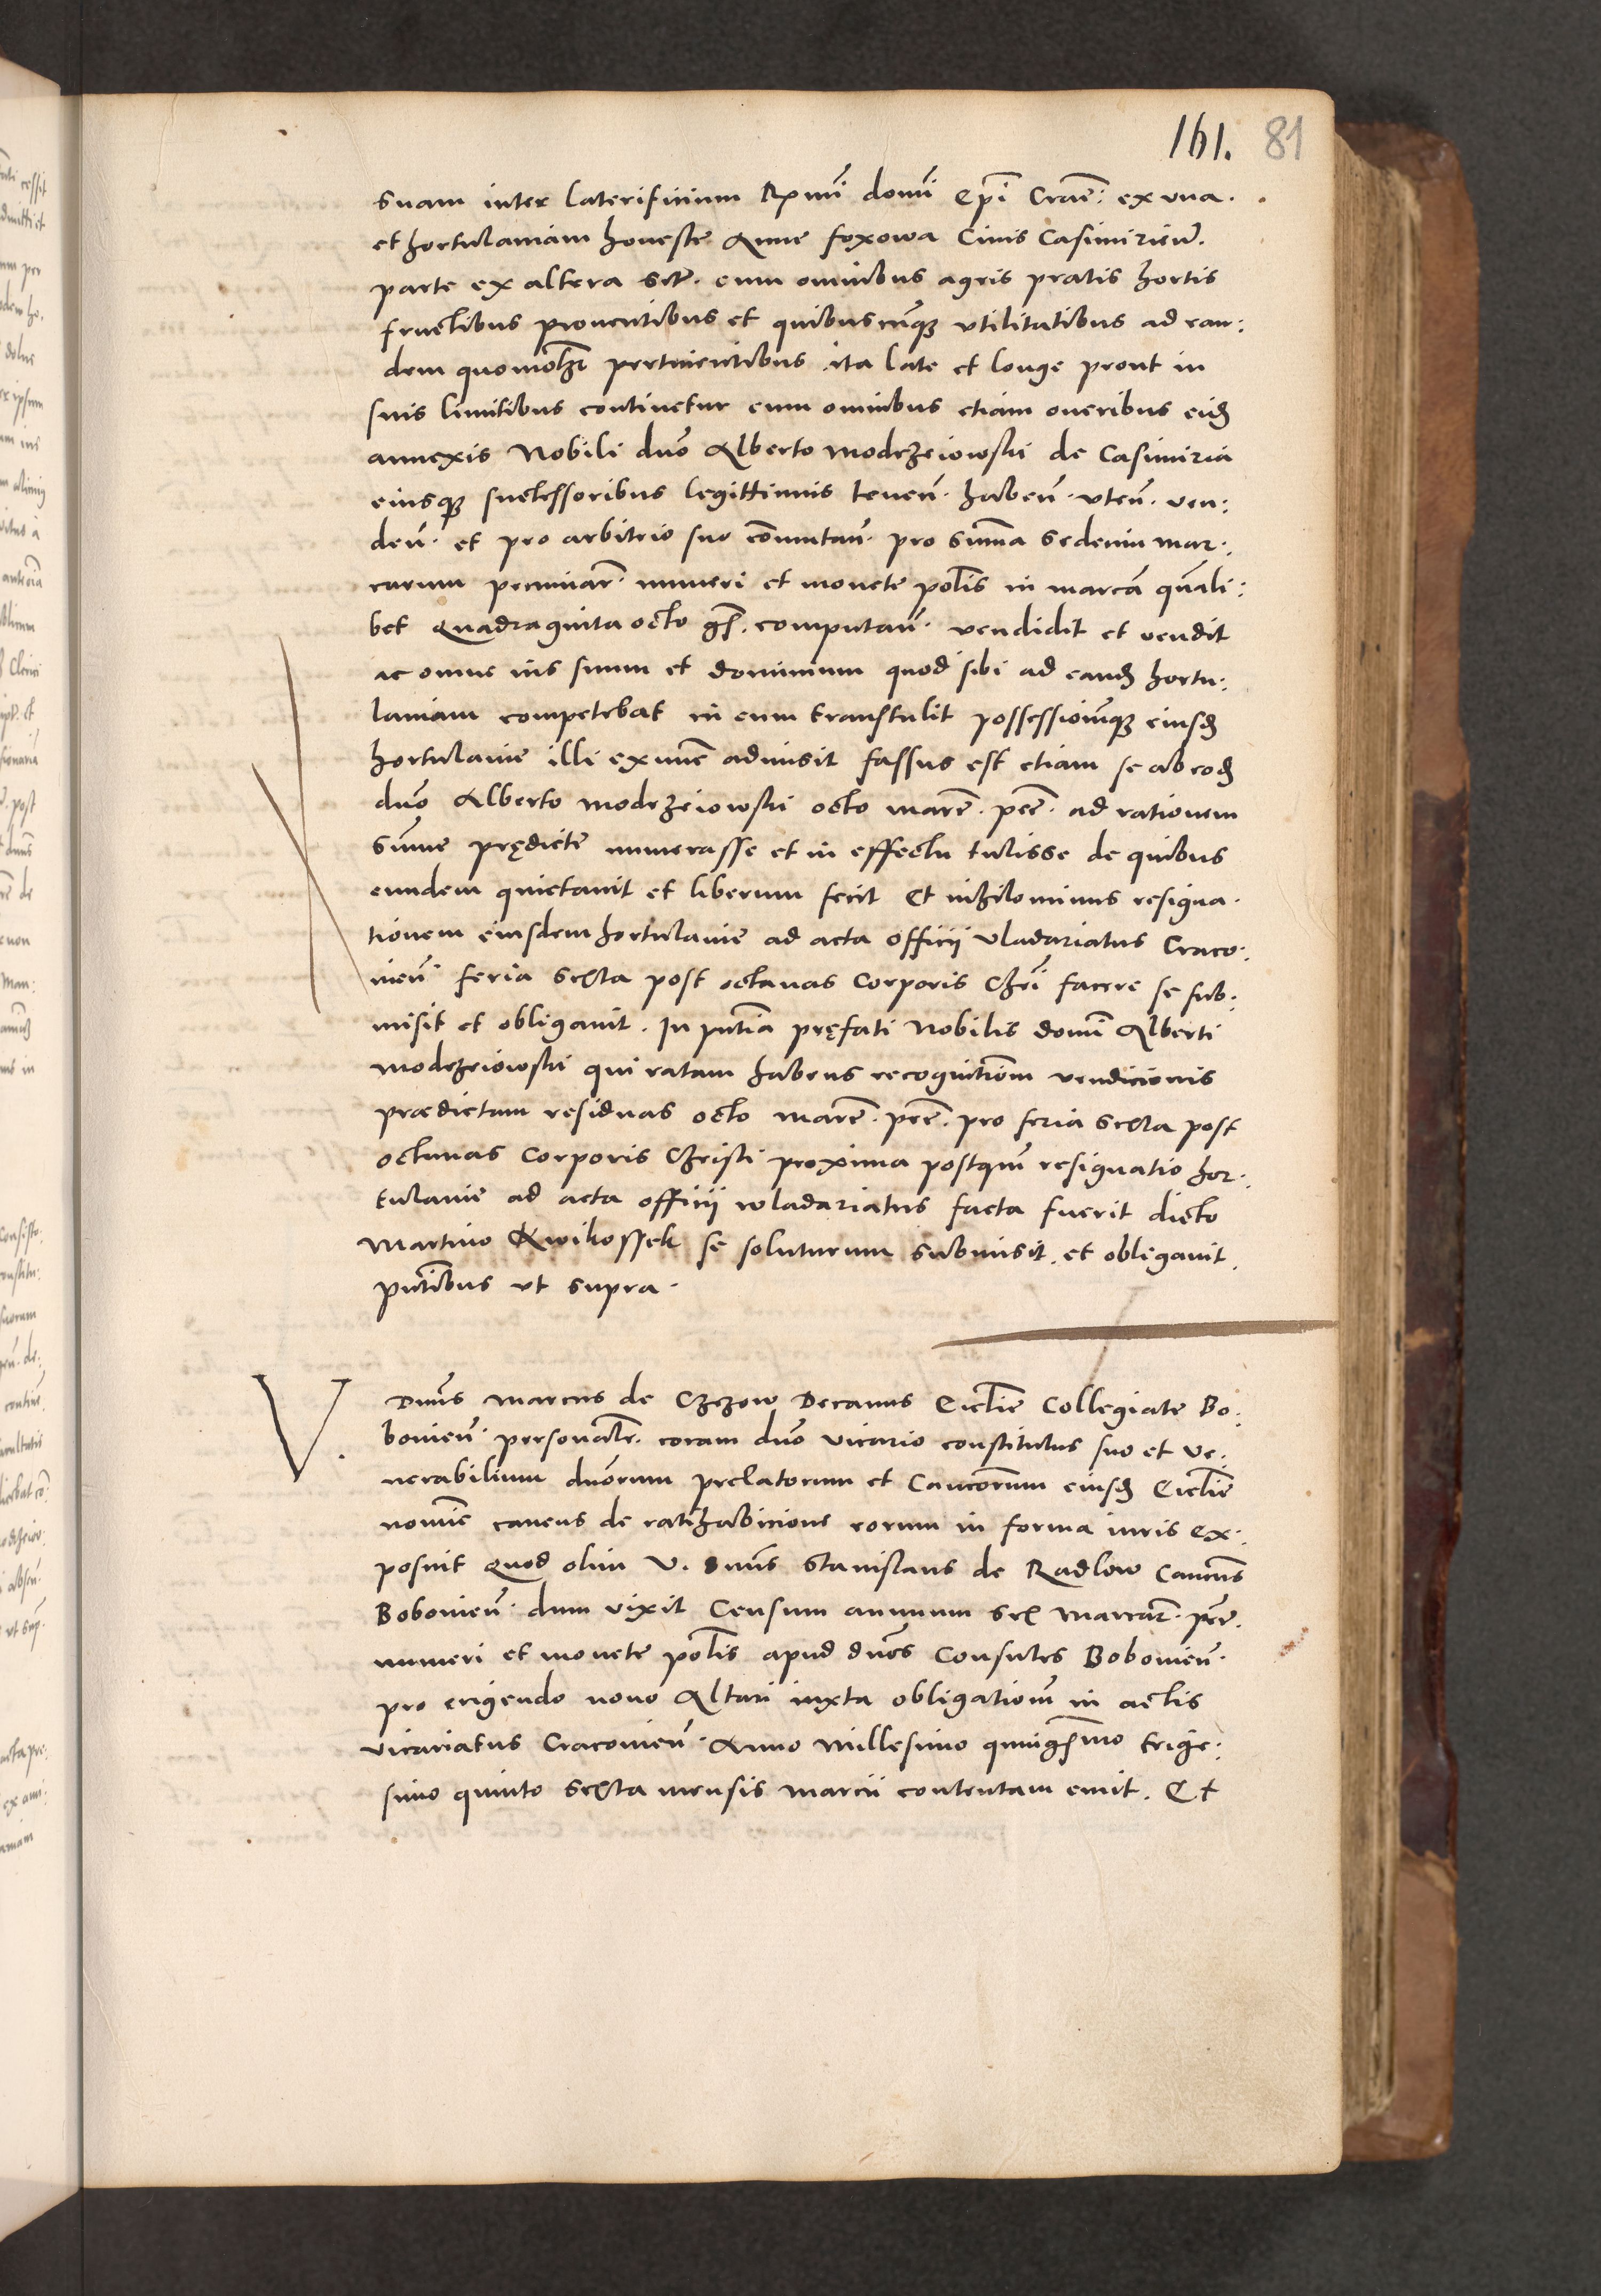 161. 81
suam inter laterificium Rm̃i domĩ Ep̃i Cracẽ: ex vna.
et hortulaniam honeste Anne foxowa Civis Casimirieñ.
parte ex altera sitã. cum omnibus agris pratis hortis
fructibus proventibus et quibuscũq3 vtilitatibus ad ean:
dem quomolib3 pertinentibus ita late et longe prout in
suis limitibus continetur cum omnibus etiam oneribus eid3
annexis Nobili dño Alberto modrzeiowski de Casimiria
eiusq3 successoribus legittimis teneñ. habeñ. vteñ. ven:
deñ. et pro arbitrio suo cõmutañ. pro sũma sedecim mar:
carum pecuniar̃. numeri et monete polis̃ in marcã quãli:
bet quadraginta octo gr̃. computañ. vendidit et vendit
ac omne ius suum et dominium quod sibi ad eand3 hortu:
laniam competebat in eum transtulit possessionẽq3 eiusd3
hortulanie illi ex nunc admisit fassus est etiam se ab eod3
dño Alberto modrzeiowski octo marcẽ. pecẽ. ad rationem
sũme prędicte numerasse et in effectu tulisse de quibus
eundem quietavit et liberum fecit Et nihilominus resigna.
tionem eiusdem hortulanie ad acta officii vladariatus Craco.
vieñ. feria sexta post octavas Corporis Chrĩ facere se sub:
misit et obligavit. In pñtia pręfati Nobilis domĩ Alberti
modrzeiowski qui ratam habens recognitiõem vendicionis
prædictam residuas octo marcẽ. pecẽ. pro feria sexta post
octavas Corporis Christi proxima postquã resignatio hor.
tulanie ad acta officii wladariatus facta fuerit dicto
Martino Kwikossek se soluturum submisit. et obligavit.
pñtibus ut supra.
V. Dñus Marcus de Czczow Decanus Ecclie Collegiate Bo:
bovieñ. personalr̃. coram dño vicario constitutus suo et ve.
nerabilium dñorum prelatorum et Canicorum eiusd3 Ecclie
nomie cavens de ratihabicione eorum in forma iuris ex.
posuit Quod olim V. dnus̃ Stanislaus de Radlow Canicus
Bobovieñ. dum vixit Censum annuum sex marcar̃. pecẽ.
numeri et monete polis̃ apud dños Consules Bobovieñ.
pro erigendo novo Altari iuxta obligationẽ in actis
vicariatus Cracovieñ. Anno millesimo quingesmo trige:
simo quinto sexta mensis marcii contentam emit. Et